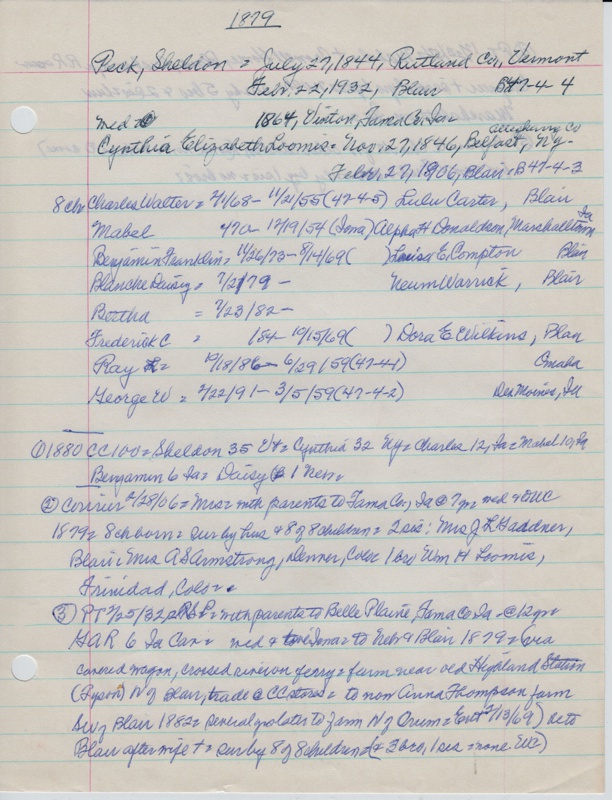 1879
Peck, Sheldon = July 27, 1844, Rutland Co, Vermont
Feb. 22, 1932, Blair B47-4-4
med 1864, Vinton, Tama Co, Ia =
Allegheny Co
Cynthia Elizabeth Loomis = Nov. 27, 1846, Belfast, Ny -
Feb. 27, 1906, Blair = B47-4-3
8 ch Charles Walter = 7/1/68 - 11/21/55 (47-4-5) Lulu Carter, Blair
Mabel 4/70 - 12/19/54 (Iona) Alpha H Donaldson, Marshalltown Ia
Benjamin Franklin = 11/26/73 - 8/14/69 ( ) Louisa E. Compton Blair
Blanche Daisy = 7/2/79 - Neum Warrick, Blair
Bertha = 7/23/82 -
Frederick C = 184 - 10/15/69 ( ) Dora E Wilkins, Blair
Ray = 10/18/86 - 6/29/59 (47-4-1) Omaha
George W = 7/22/91 - 3/5/59 (47-4-2) Des Moines, Ia
① 1880 CC100 = Sheldon 35 Vt = Cynthia 32 Ny = Charles 12, Ia = Mabel 10, Ia
Benjamin 6 Ia = Daisy 1 Neb =
② Courier 2/28/06 = Mrs = with parents to Tama Co, Ia @ 7 yr = med &
1879 = 8 ch born = sur by hus & 8 of 8 children = 2 sis: Mrs J L Gaddner,
Blair & Mrs A S Armstrong, Denver, Colo 1 bro Wm H Loomis,
Trinidad, Colo =
③ PT 2/25/32 = with parents to Belle Plaine, Tama Co Ia = @ 12 yr =
GAR 6 Ia Cav = med & to Neb & Blair 1879 = via
covered wagon, crossed river on ferry = farm near old Highland Station
(Tyson) N of Blair, trade @ CC stores = to non Anna Thompson farm
SW of Blair 1882 = several yrs later to farm N of Orum = Ent 2/13/69) = to
Blair after wife + = sur by 8 of 8 children (& 3 bro, 1 sis = none )